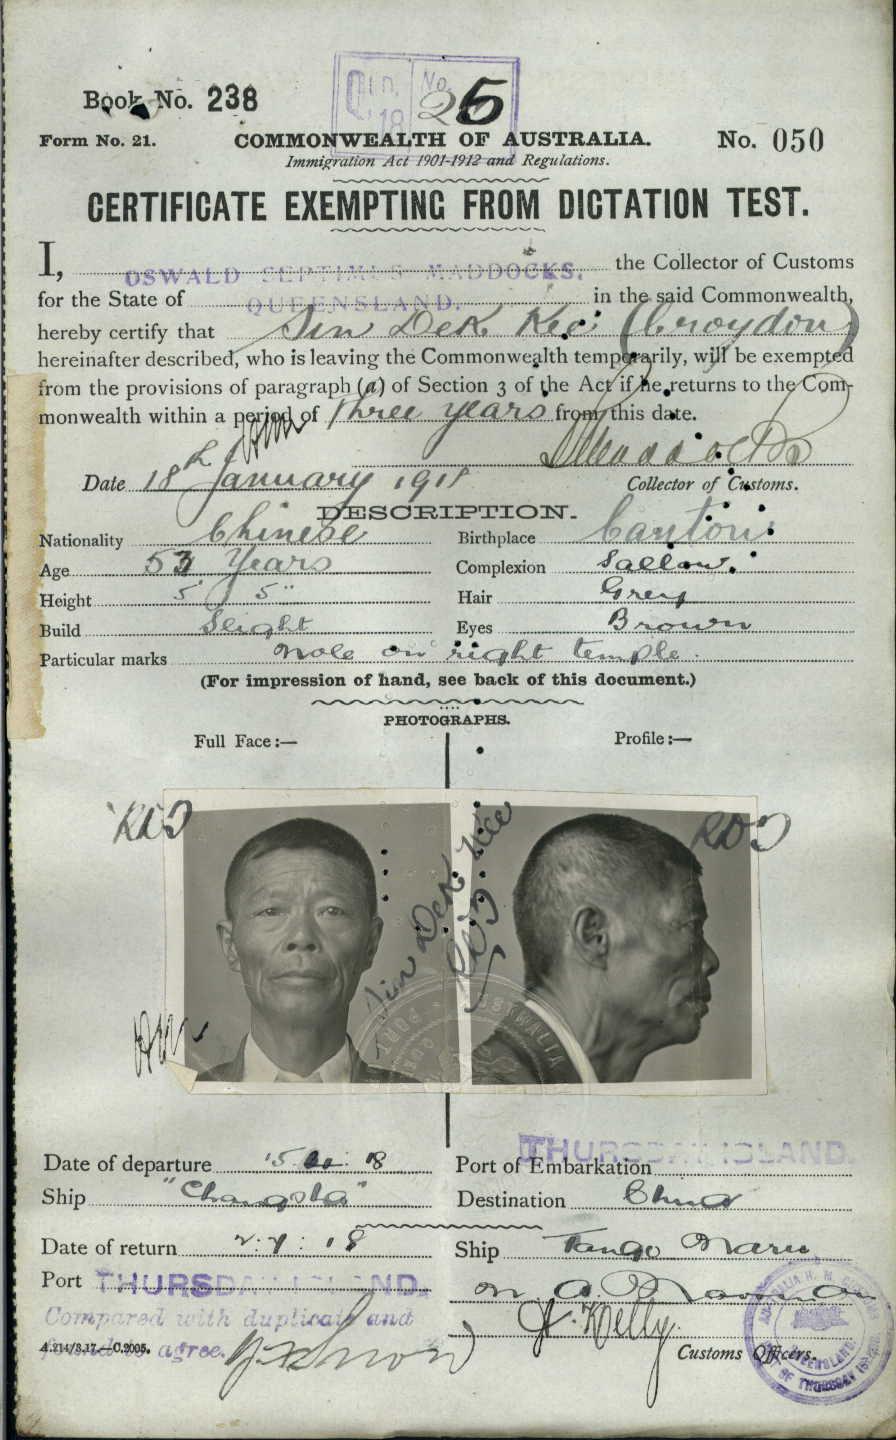 Book No. 238
QLD. No.
18 26
Form No. 21.
COMMONWEALTH OF AUSTRALIA.
No. 050
Immigration Act 1901-1912 and Regulations.
CERTIFICATE EXEMPTING FROM DICTATION TEST.
I, OSWALD SEPTIMUS MADDOCKS, the Collector of Customs
for the State of QUEENSLAND. in the said Commonwealth,
hereby certify that Sin Dek Kee (Croydon)
hereinafter described, who is leaving the Commonwealth temporarily, will be exempted
from the provisions of paragraph (a) of Section 3 of the Act if he returns to the Com-
monwealth within a period of Three years from this date.
Date 18th January 1918
Collector of Customs.
DESCRIPTION.
Nationality Chinese
Birthplace Canton
Age 53 Years
Complexion Sallow
Height 5' 5"
Hair Grey
Build Slight
Eyes Brown
Particular marks Mole on right temple.
(For impression of hand, see back of this document.)
PHOTOGRAPHS.
Full Face:—
Profile:—
Sin Dek Kee
Date of departure
Port of Embarkation THURSDAY ISLAND.
Ship "Changsha"
Destination China
Date of return
Ship Tango Maru
Port THURSDAY ISLAND.
Compared with duplicate and
found to agree.
A.214/3.17.—C.2005.
Kelly.
Customs Officers.
AUSTRALIA H. M. CUSTOMS
QUEENSLAND.
PORT OF THURSDAY ISLAND